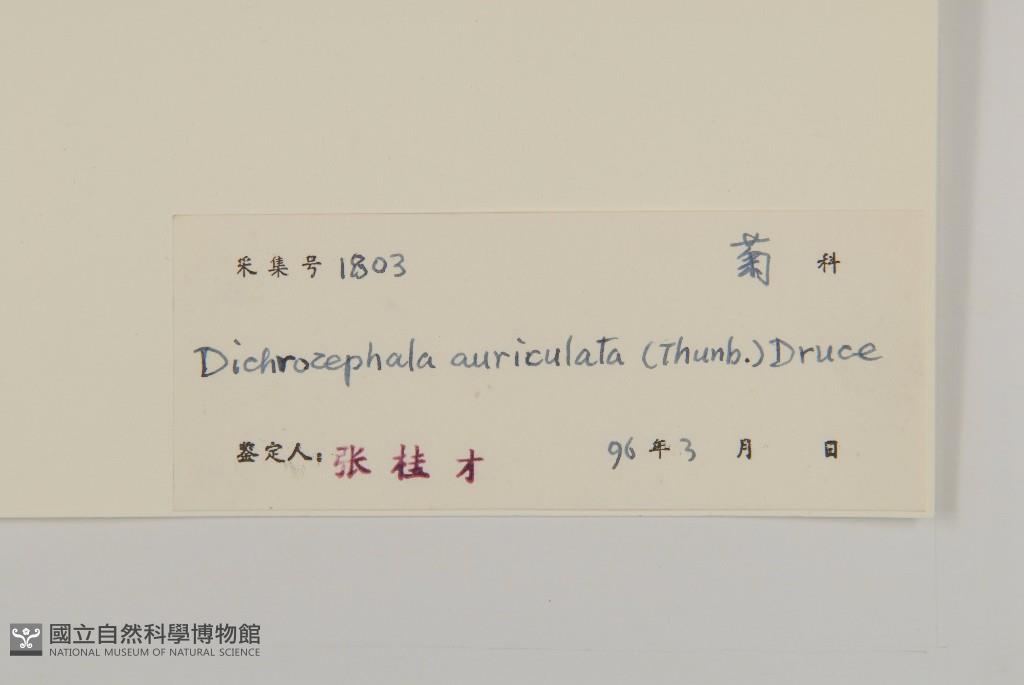 采集号 1803 菊 科
Dichrocephala auriculata (Thunb.) Druce
鉴定人: 张桂才 96年3月 日
國立自然科學博物館
NATIONAL MUSEUM OF NATURAL SCIENCE